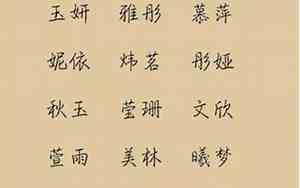 玉妍 雅彤 慕萍
妮依 炜茗 彤娅
秋玉 莹珊 文欣
萱雨 美林 曦梦